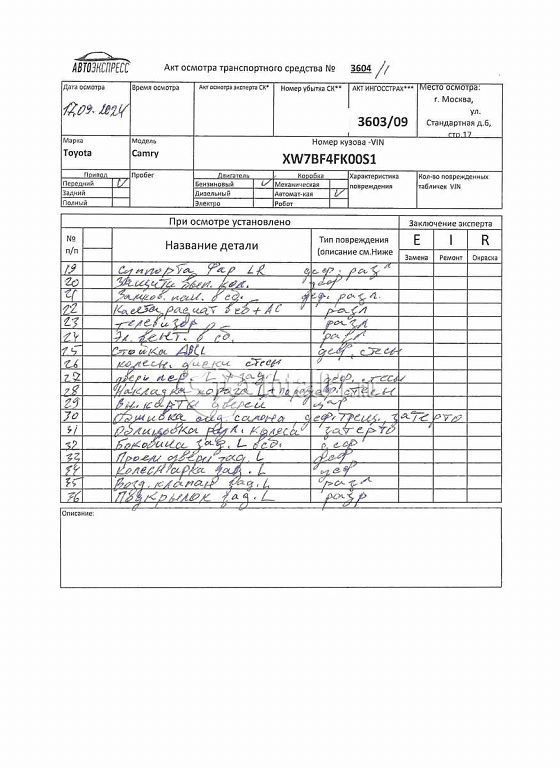 АВТОЭКСПРЕСС
Акт осмотра транспортного средства № 3604/1
Дата осмотра Время осмотра Акт осмотра эксперта СК* Номер убытка СК** АКТ ИНГОССТРАХ*** Место осмотра:
17.09.2024 3603/09 г. Москва,
ул.
Стандартная д.6,
стр.17
Марка Модель Номер кузова -VIN
Toyota Camry XW7BF4FK00S1
Привод Пробег Двигатель Коробка Характеристика повреждения Кол-во поврежденных табличек VIN
Передний V Бензиновый V Механическая
Задний Дизельный Автомат-кая V
Полный Электро Робот
При осмотре установлено Заключение эксперта
№ п/п Название детали Тип повреждения (описание см.Ниже E I R
Замена Ремонт Окраска
19 Суппорта фар LR деф. разл
20 Защита
21 деф. разл.
22 Кассета радиат в сб + АС разл
23 телевизор разл
24 Эл. вент. в сб. разл
25 стойка АВL деф. тесы
26 колесн. диски стесы
27 двери пер. L + зад. L деф. тесы
28 Накладка порога L + порог стесы
29 Вн. карты дверей цар
30 Обшивка салона деф. трещ. затерто
31 Облицовка рул. колеса затерто
32 Боковина зад. L в сб. деф
33 Проем двери зад. L деф
34 Колесн арка зад. L деф
35 Возд. клапан зад. L разл
36 Подкрылок зад. L разр
Описание: